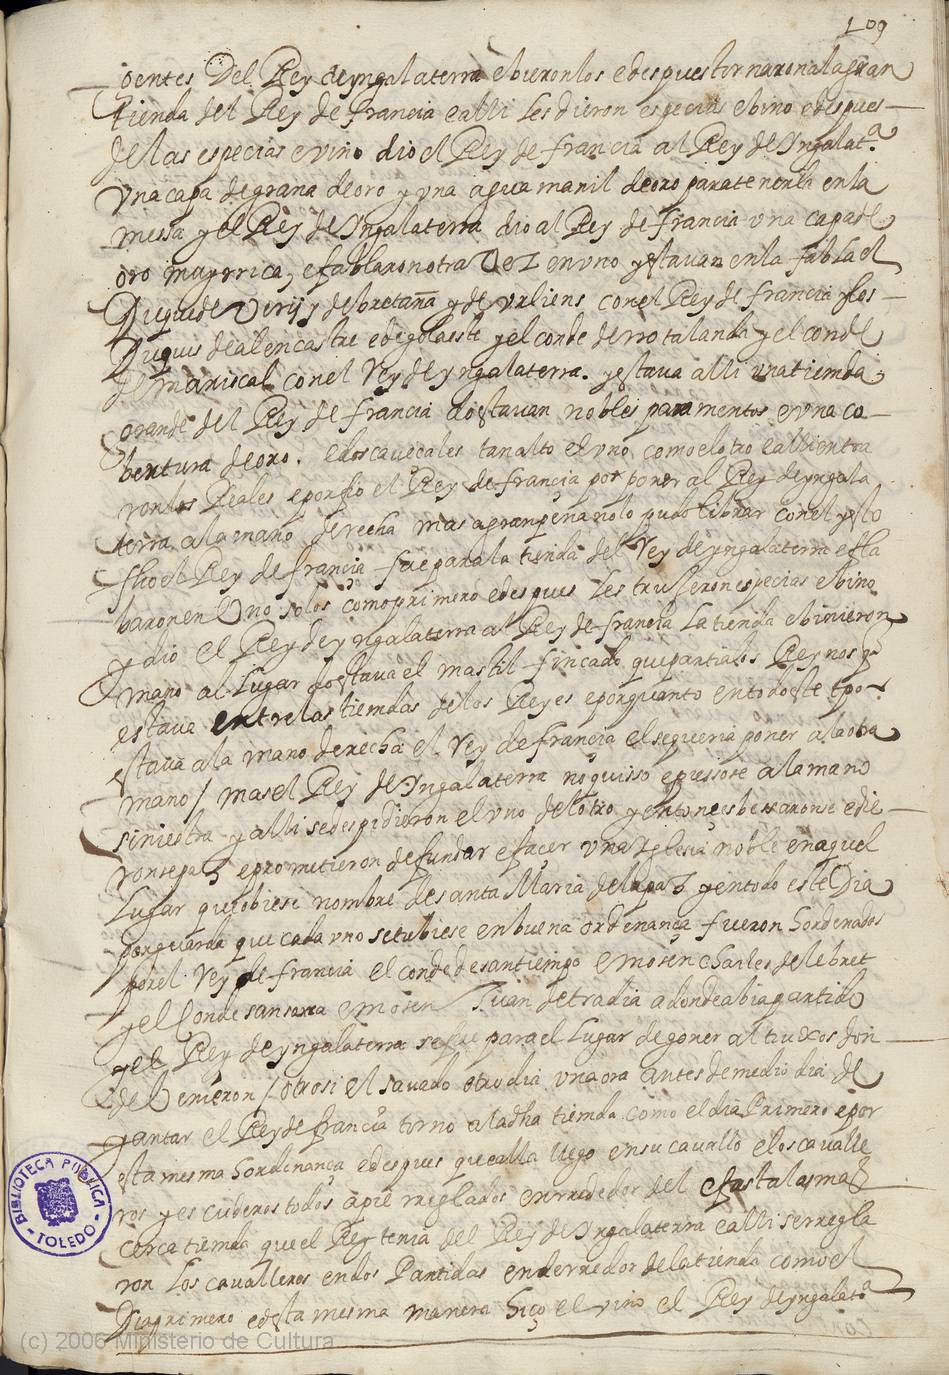 109
gentes Del Rey de yngalaterra e bieronlos e despues tornaron a la gran
tienda del Rey de francia e alli les dieron especia e bino e despues
de las especias e vino dio el Rey de francia al Rey de Yngalatª
vna capa de grana de oro y vna aguamanil de oro para tenerla en la
messa y el Rey de Yngalaterra dio al Rey de francia vna capa de
oro muy rrica, e fablaron otra vez en vno y estavan en la fabla el
Duque de Verri y de bretaña y de vrliens con el Rey de francia y los
Duques de alencastre e de golaeste y el conde de rrotalanda y el conde
mariscal con el Rey de yngalaterra. y estava alli vna tienda
grande del Rey de francia do estavan nobles paramentos e vna co
bertura de oro. e dos cavecales tan alto el vno como el otro e alli entra
ron los Reales e porfio el Rey de francia por poner al Rey de yngala
terra a la mano derecha mas a gran pena no lo pudo librar con el y esto
fho el Rey de francia fue para la tienda del Rey de yngalaterra e fla
baron en Vno solos como primero e despues les truxeron especias e bino
y dio el Rey de yngalaterra al Rey de francia la tienda e binieron
mano al lugar do estava el mastil fincado que partia los Reynos q
estava entre las tiendas de los Reyes e por quanto en todo este tpo
estava a la mano derecha el Rey de francia el se queria poner a la otra
mano / mas el Rey de Yngalaterra no quisso e pussose a la mano
siniestra y alli se despidieron el vno del otro y entonçes bessaronse e die
ronse paz e prometieron de fundar e façer vna yglesia noble en aquel
lugar que obiese nombre de santa Maria de la paz y en todo este Dia
por guarda que cada vno se tubiese en buena ordenança fueron hordenados
por el Rey de francia el conde de santiempo e mosen charles de lebret
y el Conde sansarra e mosen Juan de tradia a donde abia partido
y el Rey de yngalaterra se fue para el lugar de goner al tuxos don
de Venieron / otrosi el savado otro dia vna ora antes de medio dia de
yantar el Rey de francia torno a la dha tienda como el dia Primero e por
esta mesma hordenança e despues que calla luego en su cavallo e los cavalle
ros y escuderos todos a pie rreglados en rrededor del e fasta la mas
cerca tienda que el Rey tenia del Rey de Yngalaterra e alli se rregla
ron los cavalleros en dos Partidas en derredor de la tienda como el
Dia primero e desta mesma manera hiço el vino el Rey de yngalatª
BIBLIOTECA PUBLICA - TOLEDO -
(c) 2006 Ministerio de Cultura